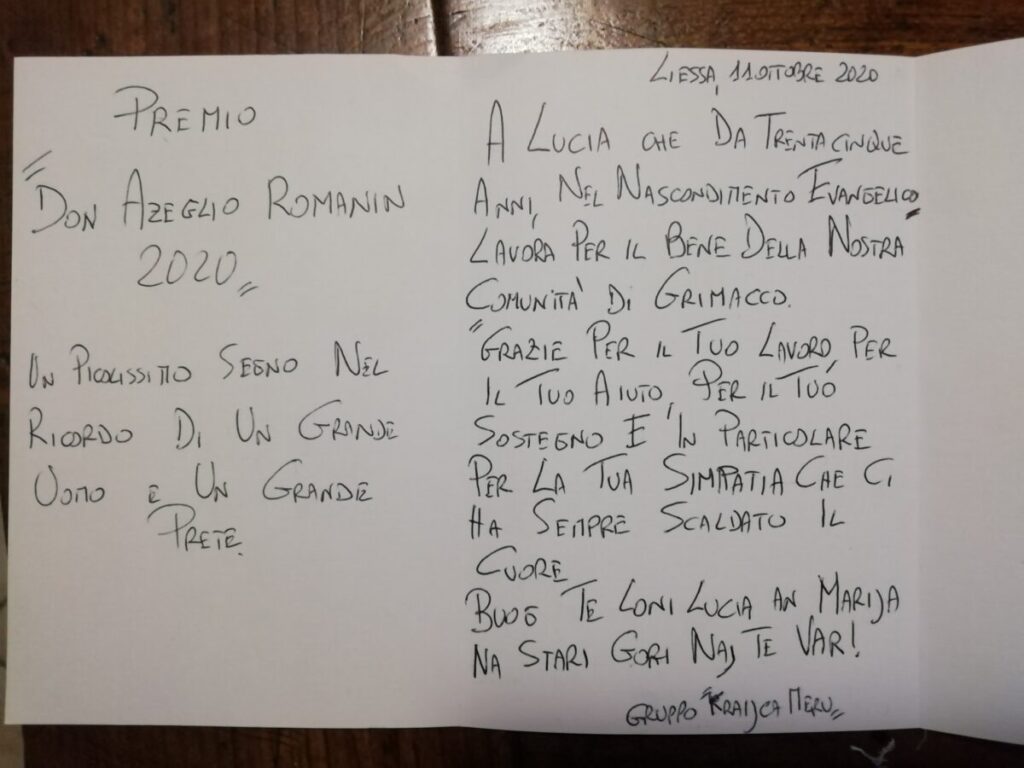 PREMIO
"DON AZEGLIO ROMANIN
2020"
UN PICCOLISSIMO SEGNO NEL
RICORDO DI UN GRANDE
UOMO E UN GRANDE
PRETE.
LIESSA, 11 OTTOBRE 2020
A LUCIA CHE DA TRENTACINQUE
ANNI, NEL NASCONDIMENTO EVANGELICO,
LAVORA PER IL BENE DELLA NOSTRA
COMUNITÀ DI GRIMACCO.
"GRAZIE PER IL TUO LAVORO, PER
IL TUO AIUTO, PER IL TUO
SOSTEGNO E IN PARTICOLARE
PER LA TUA SIMPATIA CHE CI
HA SEMPRE SCALDATO IL
CUORE
BUOG TE LONI LUCIA AN MARIJA
NA STARI GORI NAJ TE VAR!
GRUPPO "KRAIJCA MERU"